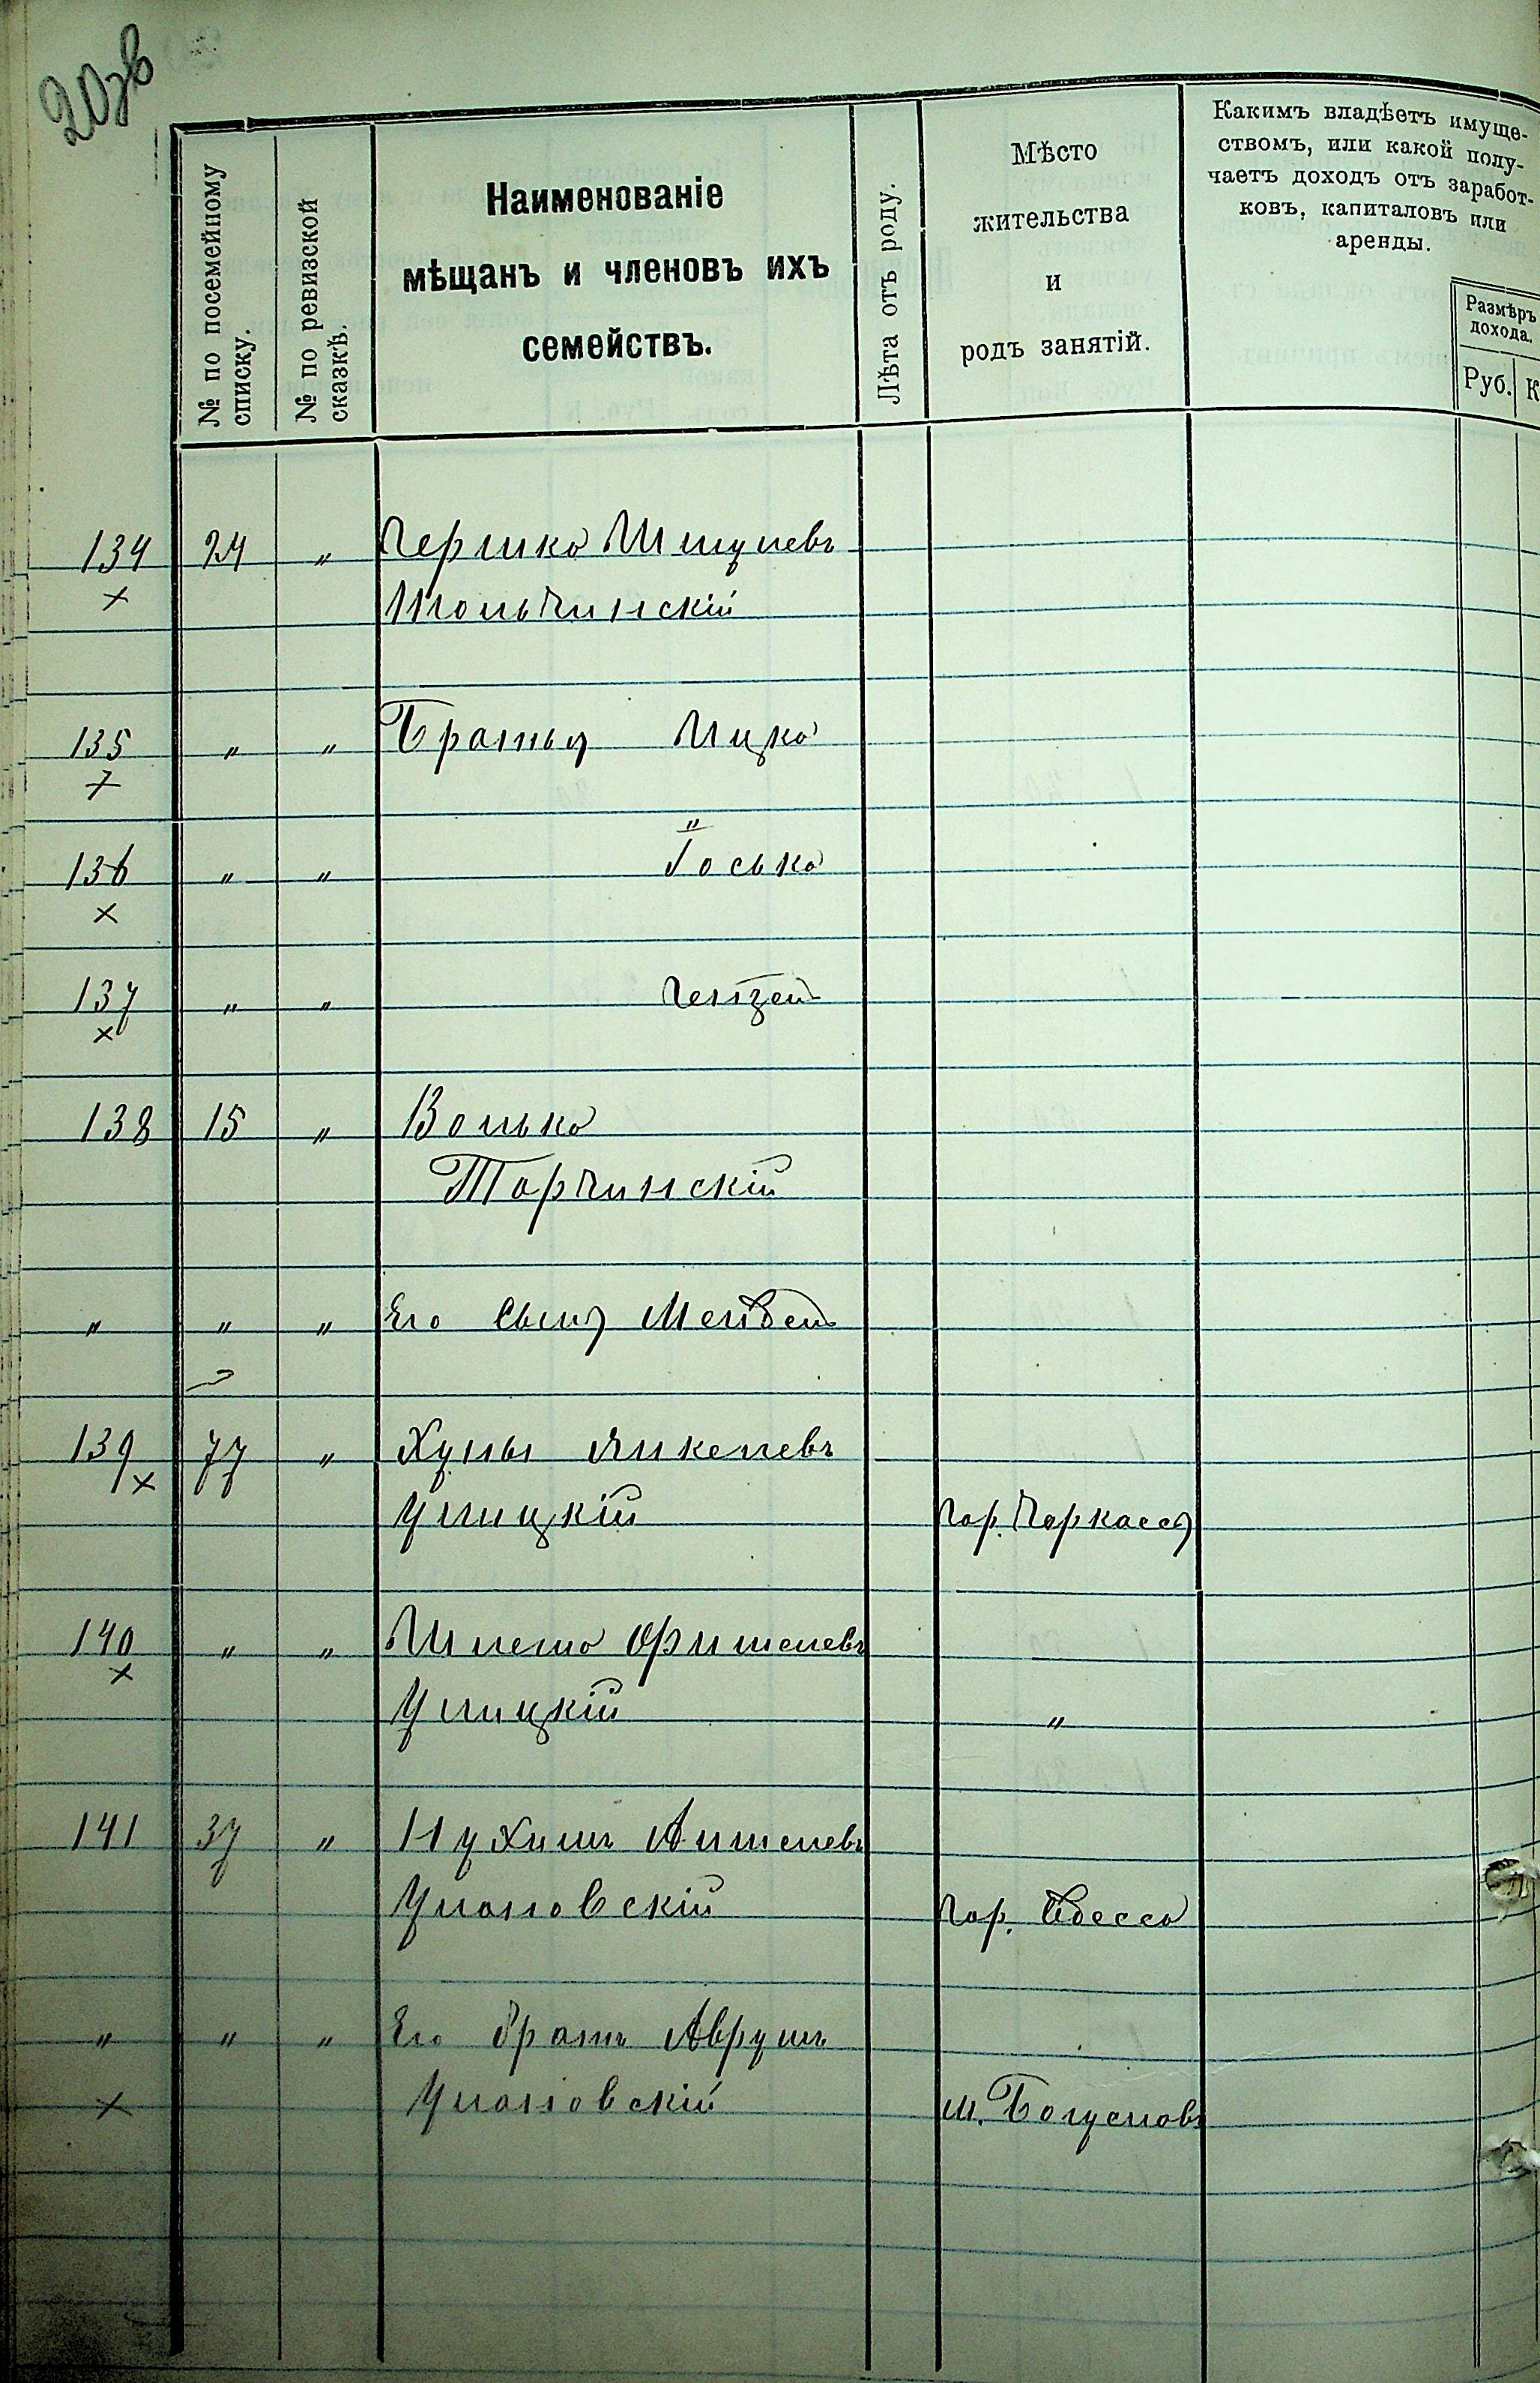 20зв
№ по посемейному списку.
№ по ревизской сказкѣ.
Наименованіе
мѣщанъ и членовъ ихъ
семействъ.
Лѣта отъ роду.
Мѣсто
жительства
и
родъ занятій.
Какимъ владѣетъ имуще-
ствомъ, или какой полу-
чаетъ доходъ отъ заработ-
ковъ, капиталовъ или
аренды.
Размѣръ
дохода.
Руб. К
134 24 " Гершко Шмулевъ
Тольчинскій
135 " " Братья Ицко
136 " " Іосько
137 " " Гейзей
138 15 " Волько
Торчинскій
" " " Его сынъ Мендель
139 77 " Хуны Янкелевъ
Улицкій Гор. Черкассъ
140 " " Шлемо Фришелевъ
Улицкій "
141 37 " Нухимъ Аншелевъ
Улановскій Гор. Одесса
" " " Его братъ Аврумъ
Улановскій м. Богуславъ